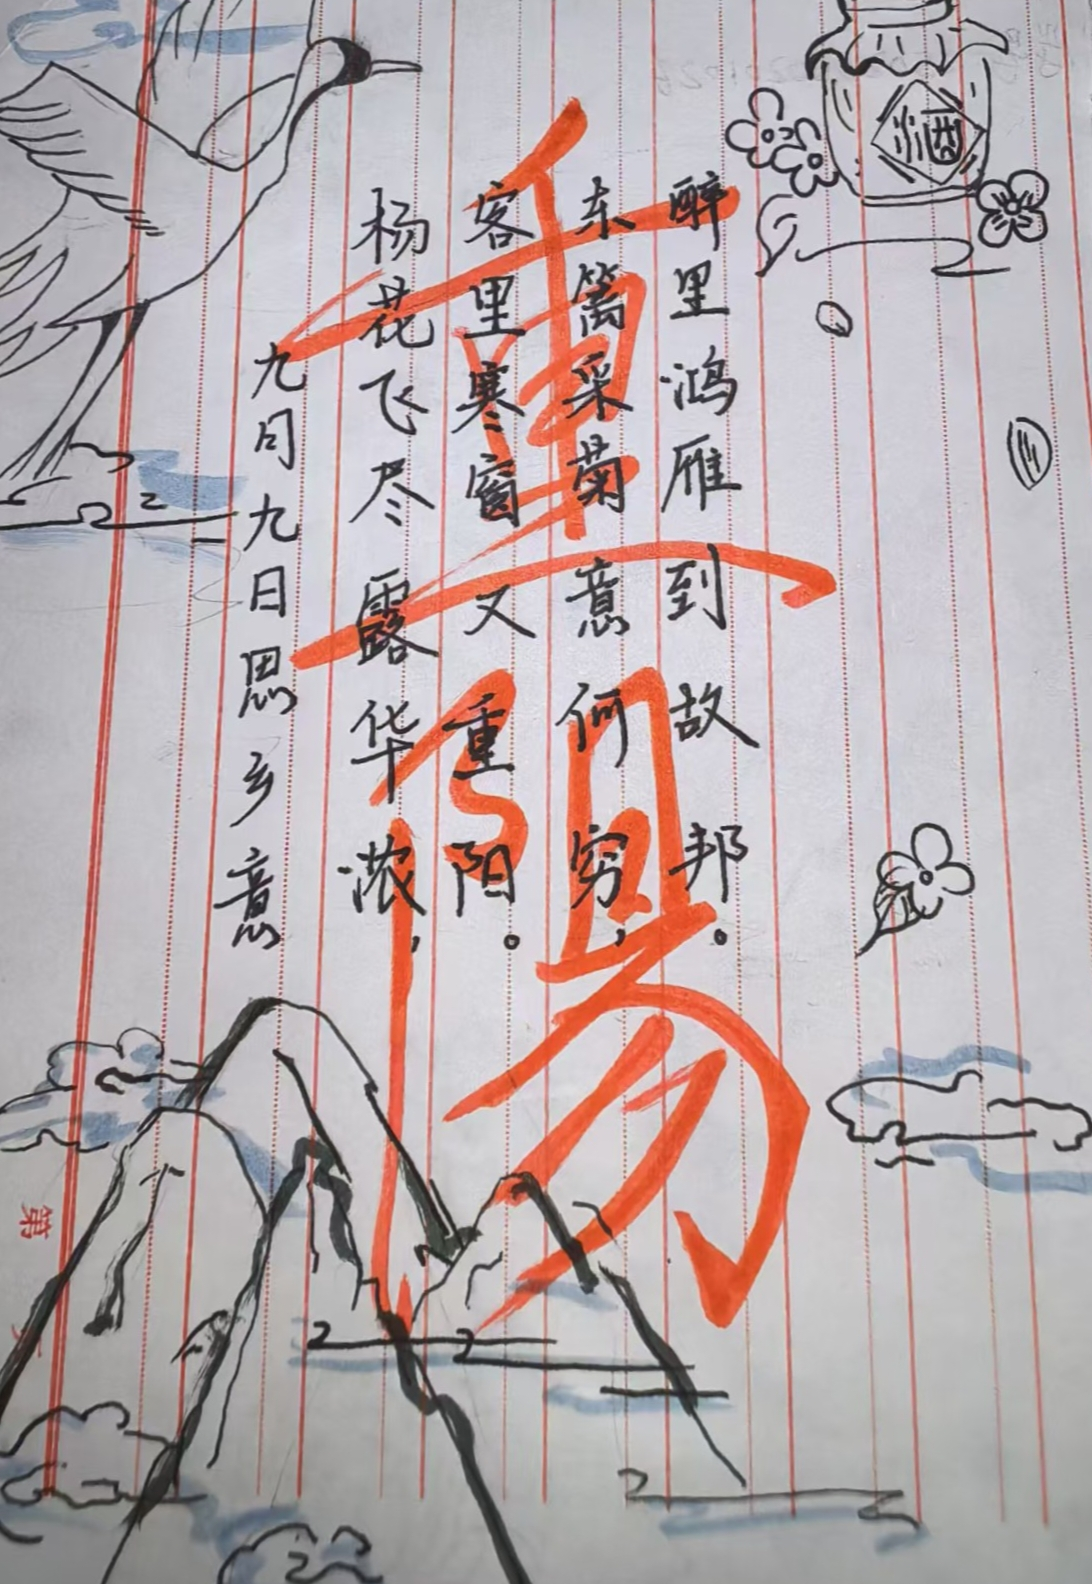 酒
重陽
九月九日思乡意
杨花飞尽露华浓，
客里寒窗又重阳。
东篱采菊意何穷，
醉里鸿雁到故邦。
第